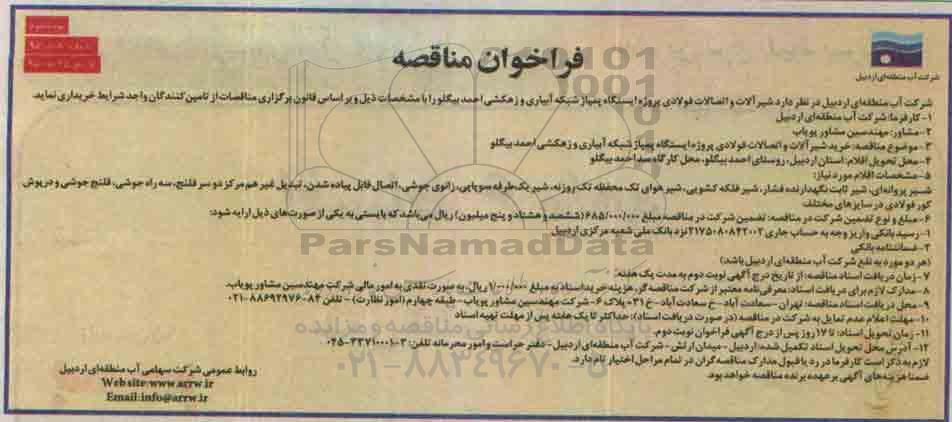 فراخوان مناقصه
شرکت آب منطقه‌ای اردبیل
شرکت آب منطقه‌ای اردبیل در نظر دارد شیرآلات و اتصالات فولادی پروژه ایستگاه پمپاژ شبکه آبیاری و زهکشی احمد بیگلو را با مشخصات ذیل و بر اساس قانون برگزاری مناقصات از تامین کنندگان واجد شرایط خریداری نماید.
۱- کارفرما: شرکت آب منطقه‌ای اردبیل
۲- مشاور: مهندسین مشاور پویاب
۳- موضوع مناقصه: خرید شیرآلات و اتصالات فولادی پروژه ایستگاه پمپاژ شبکه آبیاری و زهکشی احمد بیگلو
۴- محل تحویل اقلام: استان اردبیل، روستای احمد بیگلو، محل کارگاه سد احمد بیگلو
۵- مشخصات اقلام مورد نیاز:
شیر پروانه‌ای، شیر ثابت نگهدارنده فشار، شیر فلکه کشویی، شیر هوای تک محفظه تک روزنه، شیر یک‌طرفه سوپاپی، زانوی جوشی، اتصال قابل پیاده شدن، تبدیل غیر هم مرکز دو سر فلنج، سه راه جوشی، فلنج جوشی و درپوش
کور فولادی در سایزهای مختلف
۶- مبلغ و نوع تضمین شرکت در مناقصه: تضمین شرکت در مناقصه مبلغ ۶۸۵/۰۰۰/۰۰۰ (ششصد و هشتاد و پنج میلیون) ریال می‌باشد که بایستی به یکی از صورت‌های ذیل ارایه شود:
۱- رسید بانکی واریز وجه به حساب جاری ۲۱۷۵۰۸۰۸۴۲۰۰۲ نزد بانک ملی شعبه مرکزی اردبیل
۲- ضمانتنامه بانکی
(هر دو مورد به نفع شرکت آب منطقه‌ای اردبیل باشد)
۷- زمان دریافت اسناد مناقصه: از تاریخ درج آگهی نوبت دوم به مدت یک هفته
۸- مدارک لازم برای دریافت اسناد: معرفی‌نامه معتبر از شرکت مناقصه گر، هزینه خرید اسناد به مبلغ ۱/۰۰۰/۰۰۰ ریال، به صورت نقدی به امور مالی شرکت مهندسین مشاور پویاب.
۹- محل دریافت اسناد مناقصه: تهران - سعادت آباد - خ سعادت آباد - خ ۳۱ - پلاک ۶ - شرکت مهندسین مشاور پویاب - طبقه چهارم (امور نظارت) - تلفن ۸۴-۸۸۶۹۲۹۷۶-۰۲۱
۱۰- مهلت اعلام عدم تمایل به شرکت در مناقصه (در صورت دریافت اسناد): حداکثر تا یک هفته پس از مهلت تهیه اسناد
۱۱- زمان تحویل اسناد: تا ۱۷ روز پس از درج آگهی فراخوان نوبت دوم.
۱۲- آدرس محل تحویل اسناد تکمیل شده: اردبیل - میدان ارتش - شرکت آب منطقه‌ای اردبیل - دفتر حراست و امور محرمانه تلفن: ۳-۳۳۷۱۰۰۰۱-۰۴۵
لازم به ذکر است کارفرما در رد یا قبول مدارک مناقصه گران در تمام مراحل اختیار تام دارد.
ضمنا هزینه‌های آگهی بر عهده برنده مناقصه خواهد بود.
روابط عمومی شرکت سهامی آب منطقه‌ای اردبیل
Web site: www.arrw.ir
Email: info@arrw.ir
ParsNamadData
پایگاه اطلاع رسانی مناقصه و مزایده
۰۲۱-۸۸۳۴۹۶۷۰-۵